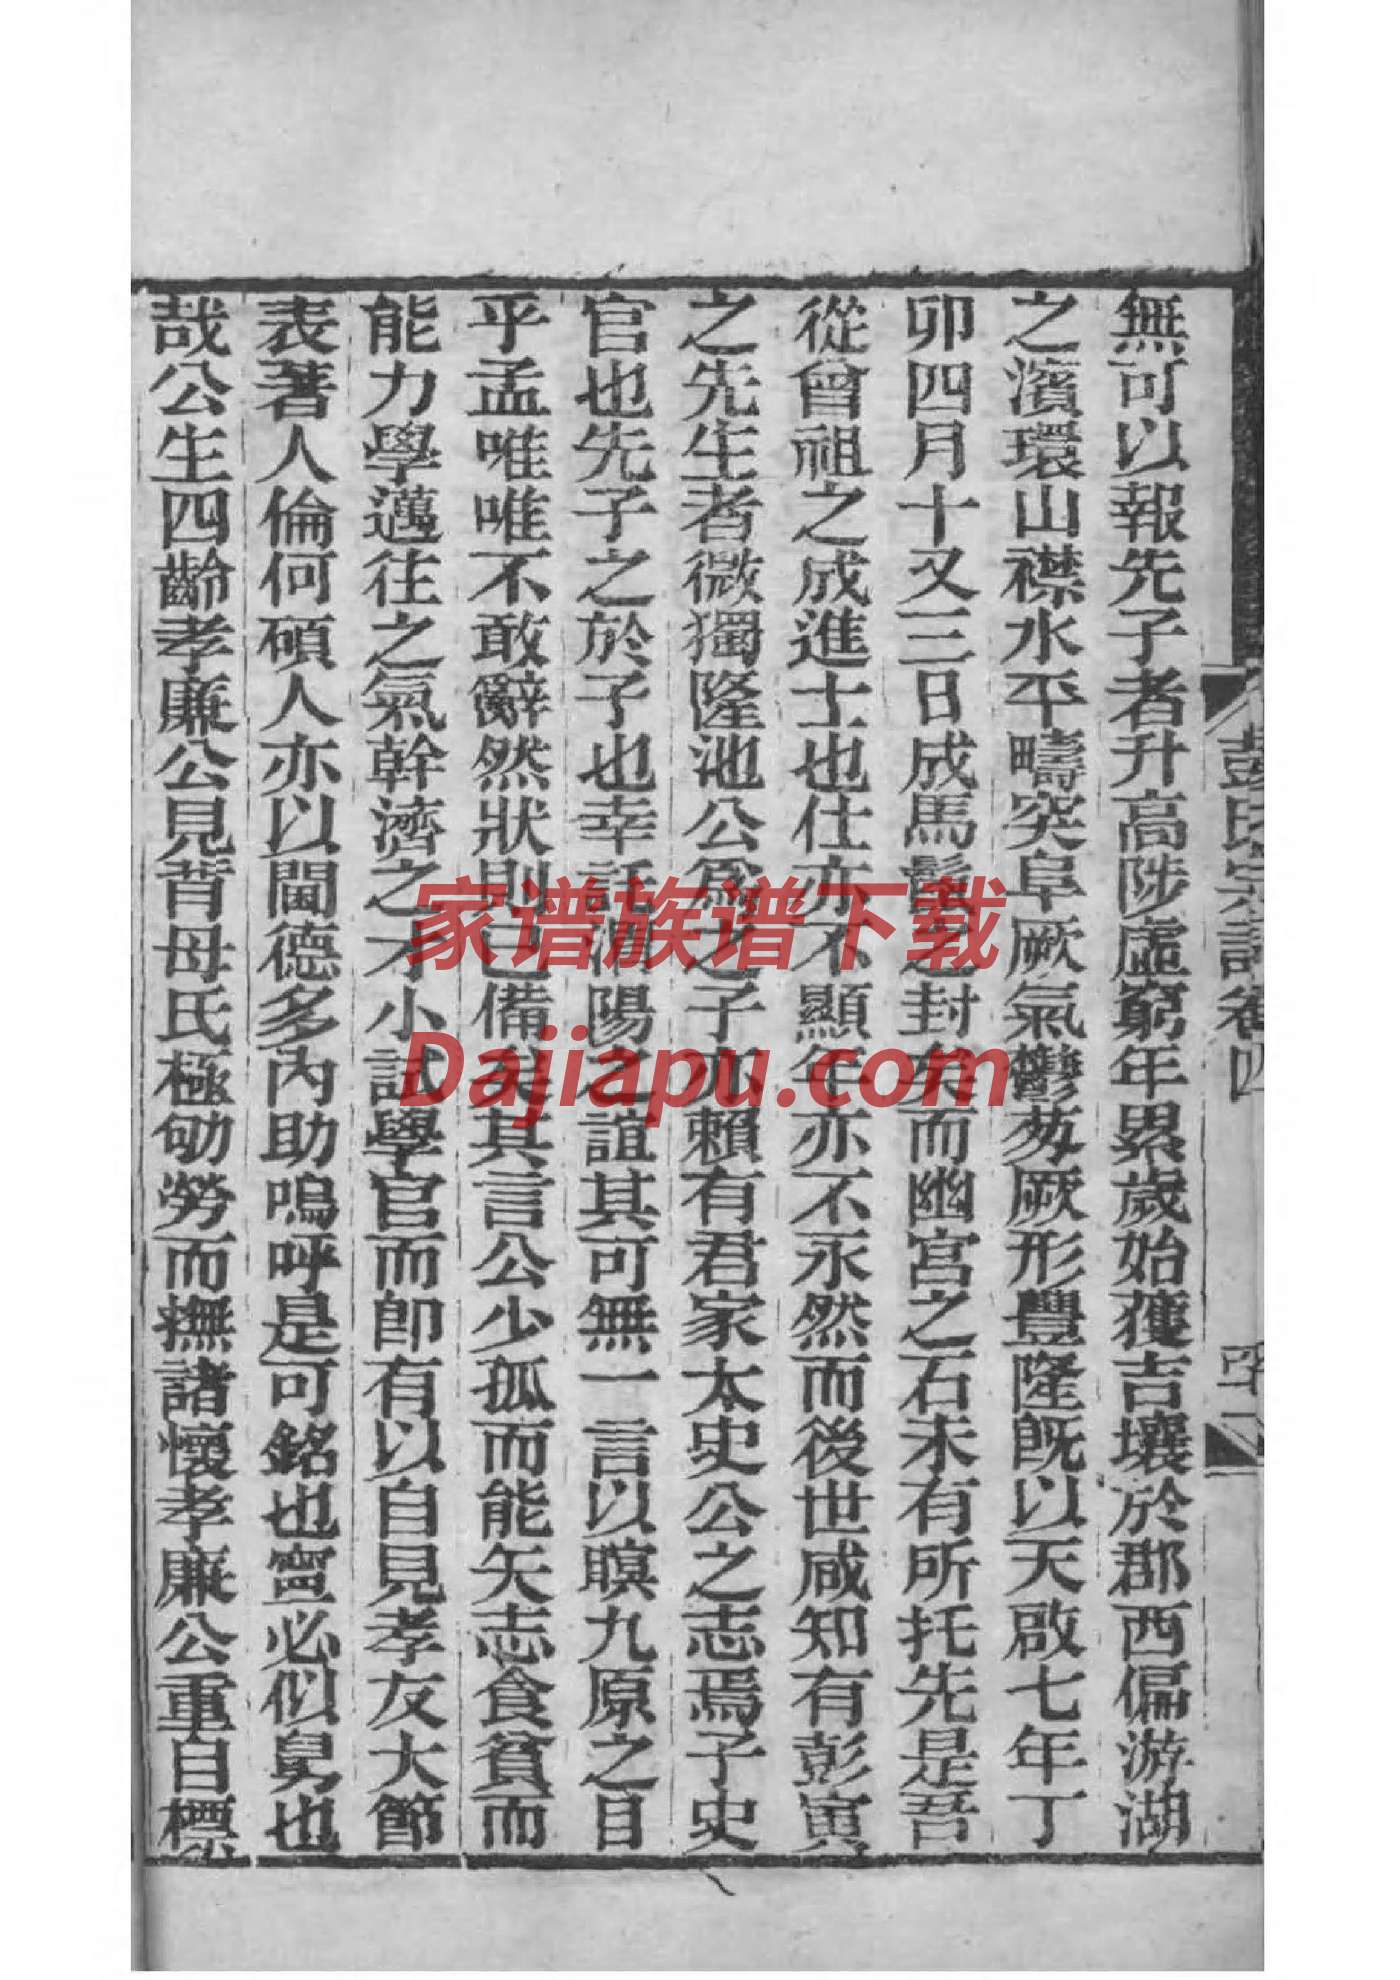 彭氏宗譜卷四
無可以報先子者升高陟虛窮年累歲始獲吉壤於郡西偏游湖
之濱環山襟水平疇突阜厥氣鬱芴厥形豐隆旣以天啟七年丁
卯四月十又三日成馬鬛之封矣而幽宮之石未有所托先是吾
從曾祖之成進士也仕亦不顯年亦不永然而後世咸知有彭寅
之先生者微獨隆池公爲之子亦賴有君家太史公之志焉子史
官也先子之於子也幸託渭陽之誼其可無一言以瞑九原之目
乎孟唯唯不敢辭然狀則已備矣其言公少孤而能矢志食貧而
能力學邁往之氣幹濟之才小試學官而卽有以自見孝友大節
表著人倫何碩人亦以閫德多內助嗚呼是可銘也寗必似舅也
哉公生四齡孝廉公見背母氏極劬勞而撫諸懷孝廉公重自標
家谱族谱下载
Dajiapu.com